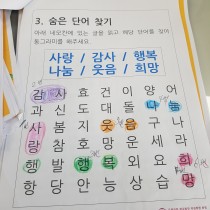 3. 숨은 단어 찾기
아래 네모칸에 있는 글을 읽고 해당 단어를 찾아
동그라미를 해주세요.
사랑 / 감사 / 행복
나눔 / 웃음 / 희망
감 사 효 건 이 양 어
과 신 도 대 돌 나 눔
사 봄 지 웃 음 구 나
랑 참 호 망 운 세 라
행 발 행 복 외 요 희
항 당 안 능 상 습 망